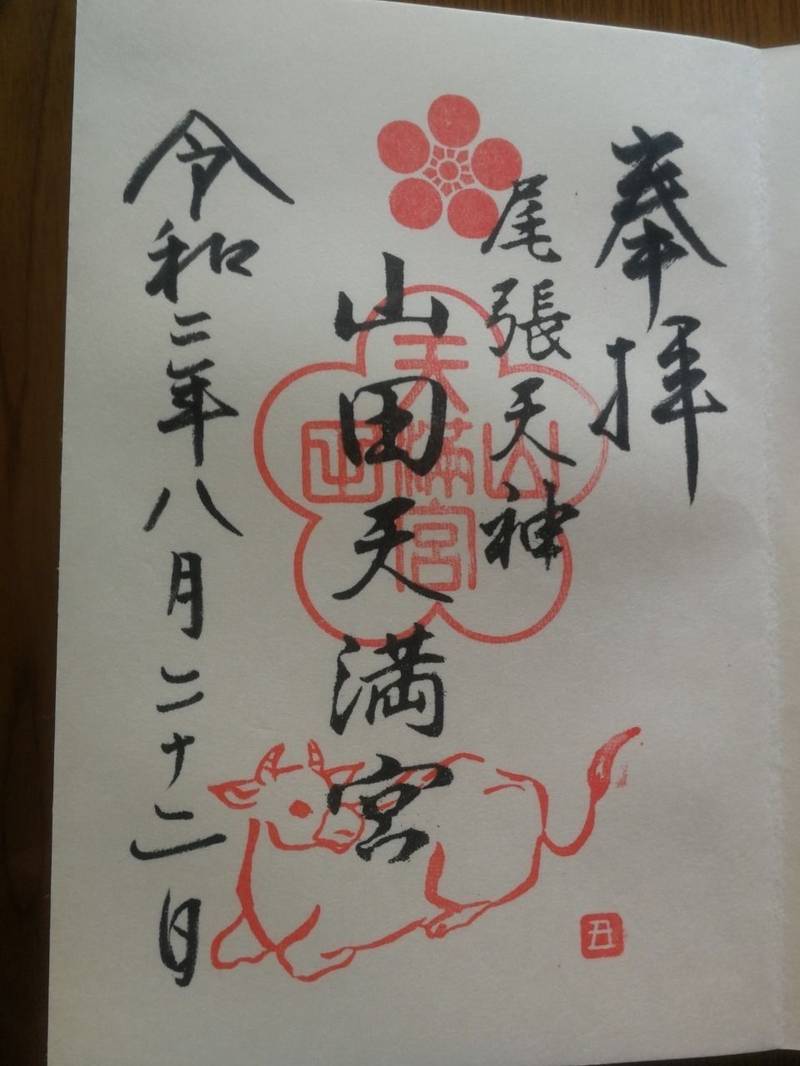 奉拝
尾張天神
山田天満宮
令和二年八月二十二日
山田
天満宮
丑